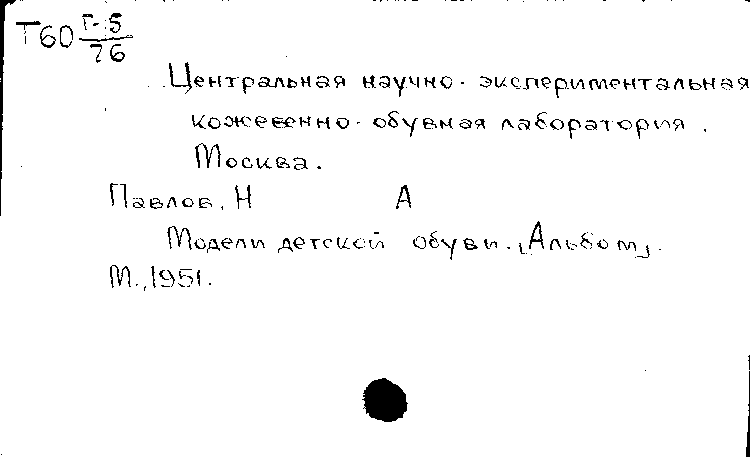 Т60 Г-5/76
Центральная научно-экспериментальная
кожевенно-обувная лаборатория.
Москва.
Павлов, Н А
Модели детской обуви. [Альбом].
М., 1951.